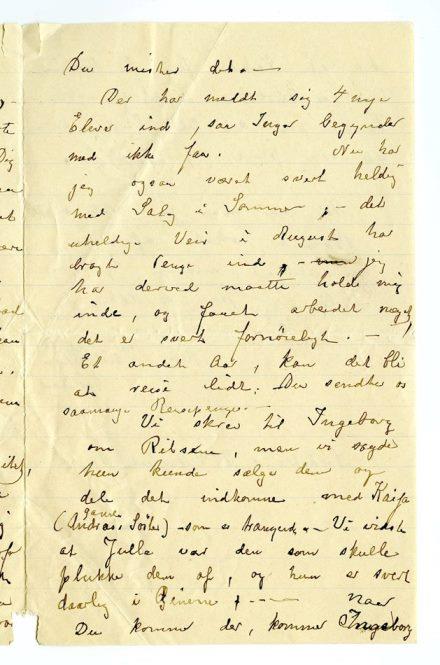 Du mister det. —
Der har meldt sig 4 nye
Elever ind, saa Inger begynder
med ikke faa. Nu har
jeg ogsaa været svært heldig
med Salg i Sommer, — det
uheldige Veir i August har
bragt Penge ind, — jeg
har derved maatte holde mig
inde, og faaet arbeidet noget,
det er svært fornøieligt. —
Et andet Aar, kan det bli
at reise lidt. Du sendte os
saamange Reisepenge. —
Vi skrev til Ingeborg
om Ribsene, men vi sagde
hun kunde sælge dem og
dele det indkomne med Kaija
(Andreas gamle Søster) — som er trangende — Vi vidste
at Julla var den som skulle
plukke dem af, og hun er svært
daarlig i Benene + — — naar
Du kommer der, kommer Ingeborg